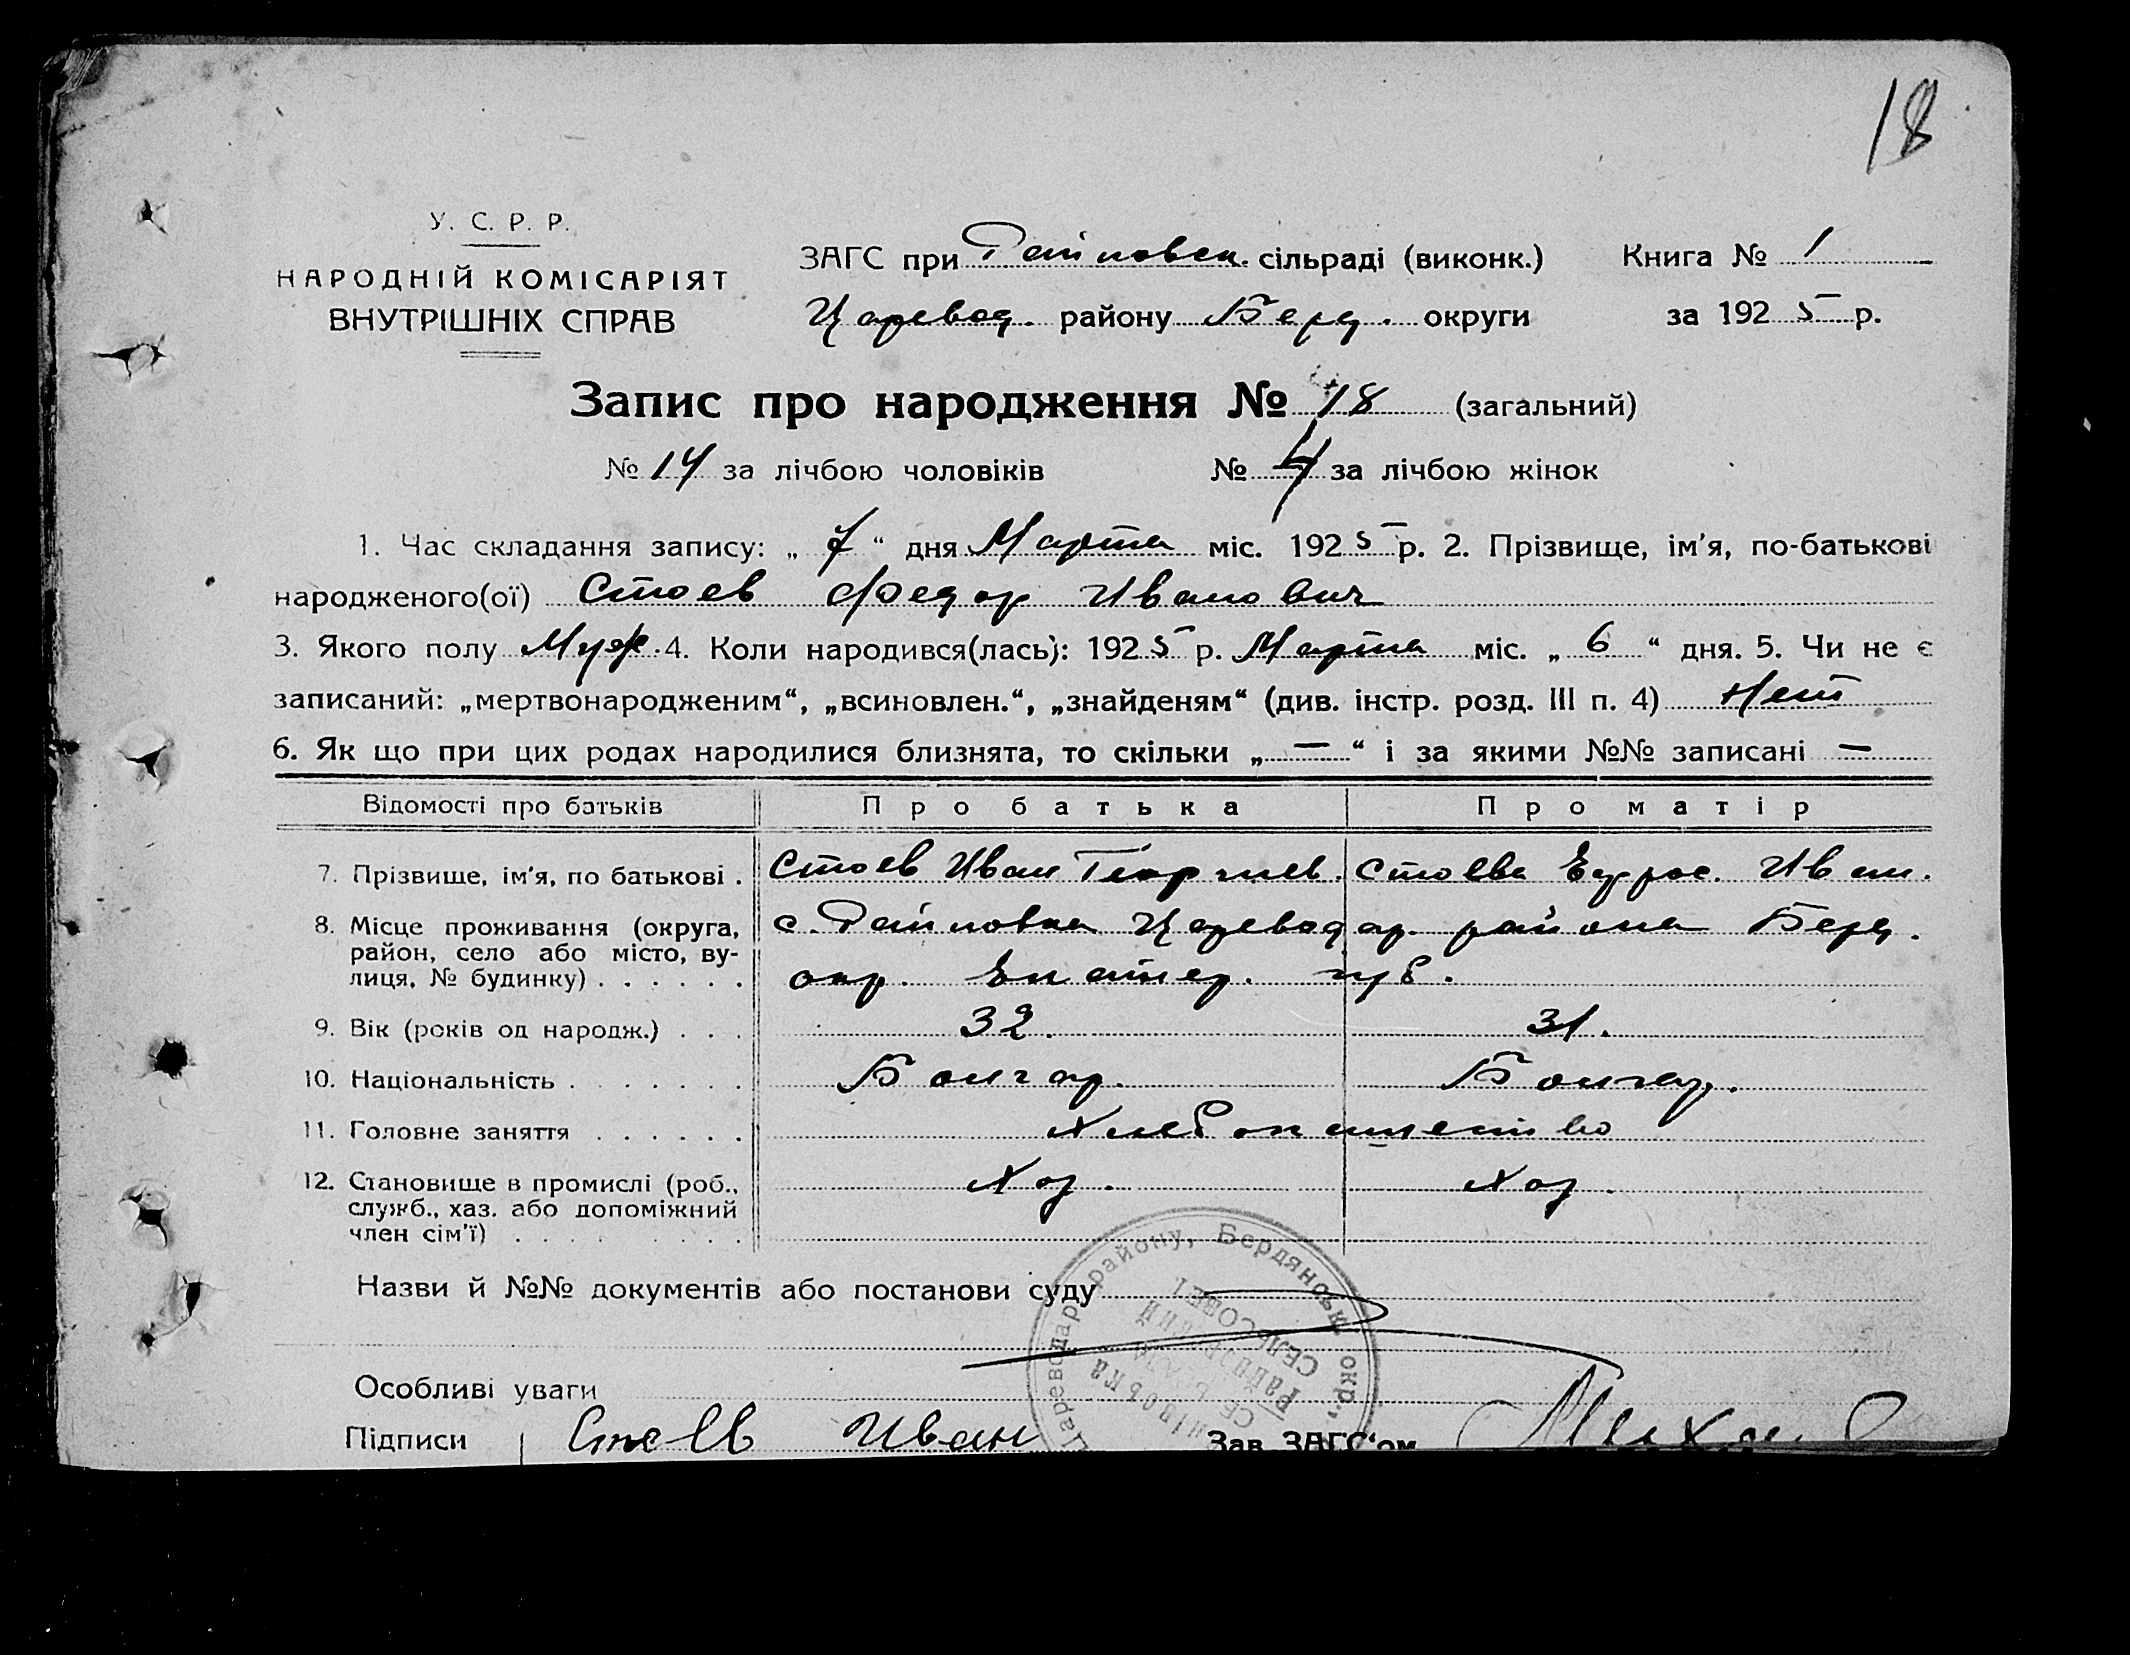 18
У. С. Р. Р.
НАРОДНІЙ КОМІСАРІЯТ
ВНУТРІШНІХ СПРАВ
ЗАГС при Райновск. сільраді (виконк.) Книга № 1
Царевод. району Берд. округи за 1925 р.
Запис про народження № 18 (загальний)
№ 14 за лічбою чоловіків № 4 за лічбою жінок
1. Час складання запису: „ 7 “ дня Марта міс. 1925 р. 2. Прізвище, ім'я, по-батькові
народженого(ої) Стоев Федор Иванович
3. Якого полу Муж. 4. Коли народився(лась): 1925 р. Марта міс. „ 6 “ дня. 5. Чи не є
записаний: „мертвонародженим“, „всиновлен.“, „знайденям“ (див. інстр. розд. III п. 4) Нет
6. Як що при цих родах народилися близнята, то скільки „ — “ і за якими №№ записані —
Відомості про батьків Про батька Про матір
7. Прізвище, ім'я, по батькові . Стоев Иван Георгиев. Стоева Ефрос. Иван.
8. Місце проживання (округа, с. Райновка Цареводар. района Берд.
район, село або місто, ву-
лиця, № будинку) . . . . . . окр. Екатер. губ.
9. Вік (років од народж.) . . . 32. 31.
10. Національність . . . . . . . Болгар. Болгар.
11. Головне заняття . . . . . . Хлебопашество
12. Становище в промислі (роб., Хоз. Хоз.
служб., хаз. або допоміжний
член сім'ї) . . . . . . . . .
Назви й №№ документів або постанови суду
Царевводар. району, Бердянськ. окр.,
СЕЛЬСОВЕТ
Особливі уваги
Підписи Стоев Иван Зав. ЗАГС'ом